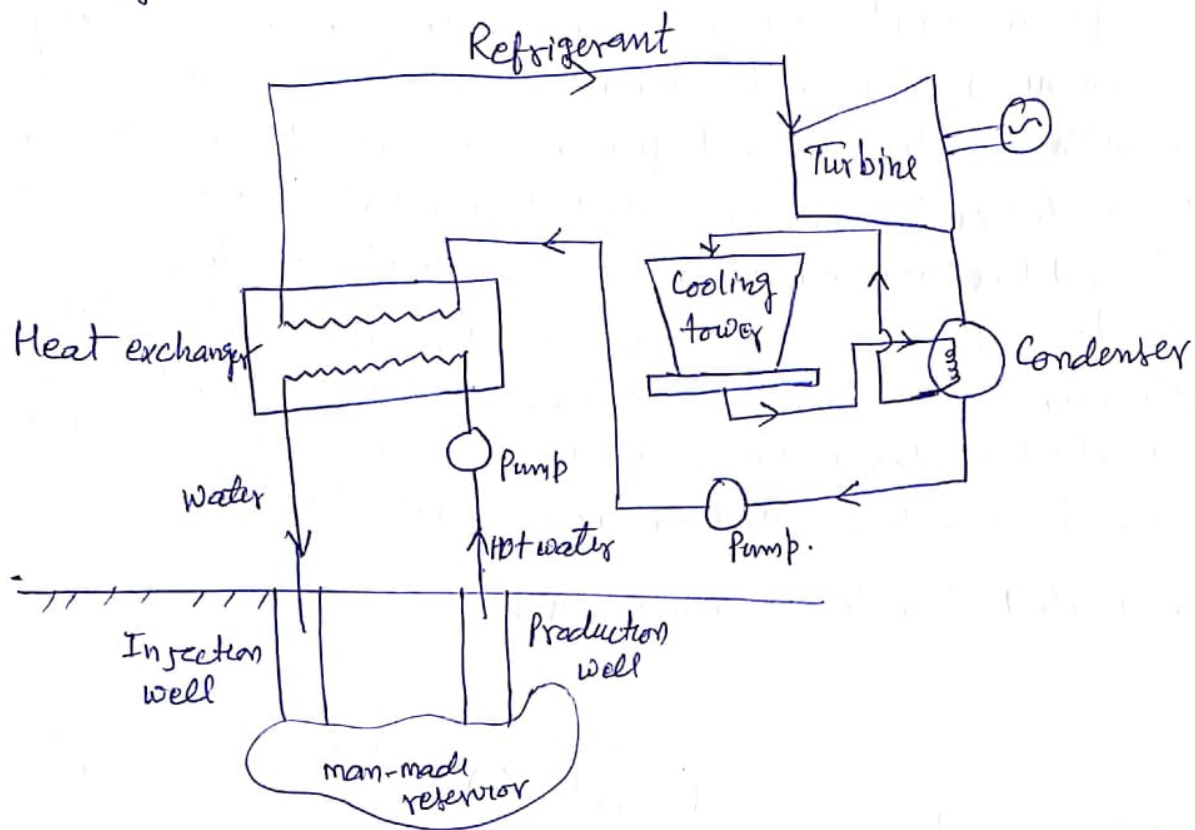 Refrigerant
Turbine
Cooling
tower
Heat exchanger
Condenser
Pump
Water
Hot water
Pump.
Injection
well
Production
well
man-made
reservior